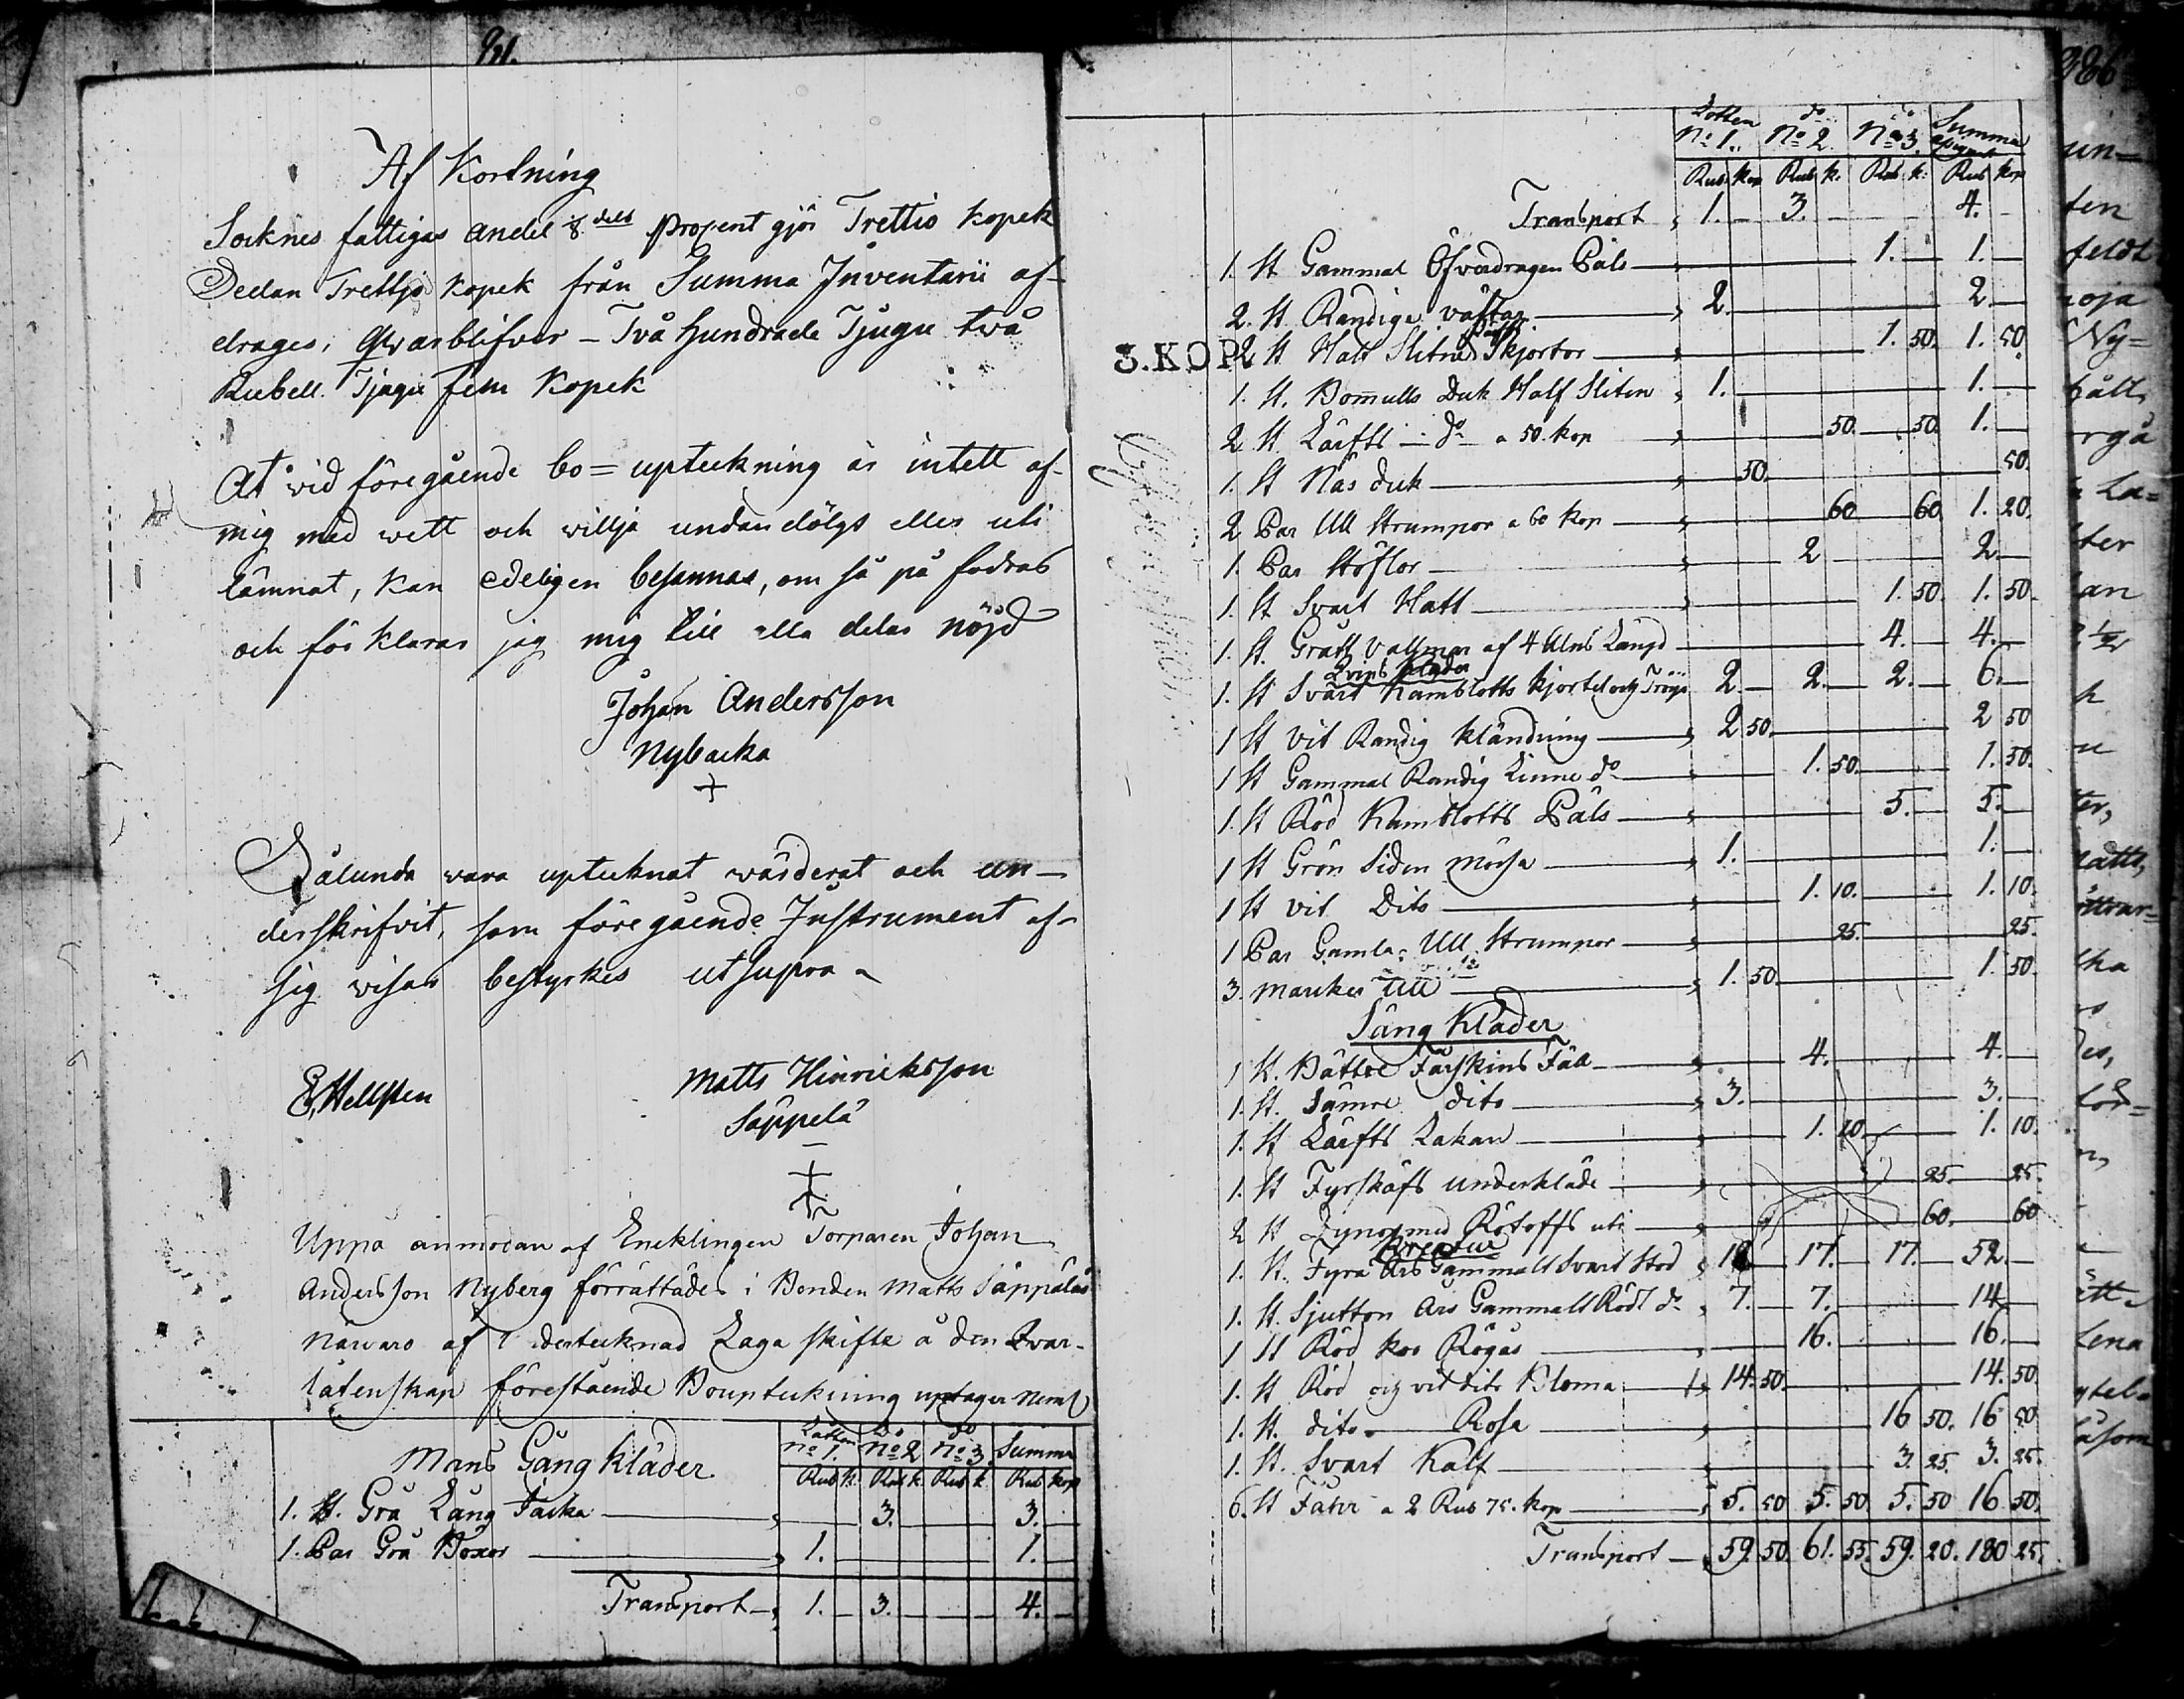 Af Kortning
Socknes fattigas andel 8 dels Procent gjör Trettio Kopek
Dedan Trettjo Kopek från Summa Inventarii af-
drages, Qvarblifver - Två Hundrade Tjugu två
Rubell. Tjugu fem Kopek
At vid föregående bo=upteckning är intett af-
mig med wett och willja undandölgt eller uti
lämnat, kan edeligen besannas, om så på fodras
och förklaras jag mig till alla delar nöjd
Johan Andersson
Nybacka
Sålunda vara uptecknat wärderat och un-
derskrifvit, som föregående Instrument af-
sig visar bestyrkes ut supra
E, Hellsten
Matts Hinricksson
Säppelä
Uppå anmodan af Encklingen Torparen Johan
Andersson Nyberg förrättades i Bonden Matts Säppälas
närvaro af Undertecknad Laga skifte å den Qvar-
låtenskap förestående Bouptekning uptager neml
Mans Gång kläder
Lotten No 1. Do No 2 do No 3. Summa
Rub k. Rub k Rub k Rub kop
1. St. Grå Lång Jacka 3. 3.
1. Par Grå Böxor 1. 1.
Transport 1. 3. 4.
386
Lotten No 1. do No 2. do No 3. Summa
Rub. Kop Rub k. Rub. k. Rub kop
Transport 1. 3. 4.
1. St Gammal Öfverdragen Päls 1. 1.
2. St Randiga västar 2. 2.
3.KOP.
2 St Halt Slitna Skjortor 1. 50. 1. 50
1. St. Bomulls Duk Half Sliten 1. 1.
2 St Lärfts do a 50. kop 50. 50. 1.
1. St Näs duk 50. 50.
2 Par Ull Strumpor a 60 kop 60 60 1. 20.
1. Par Stöflor 2 2
1. St Svart Hatt 1. 50. 1. 50.
1. St. Grått Vallmar af 4 Alns Längd 4. 4.
Qvins kläder
1. St Svart Kamblotts kjortel och Tröja 2. 2. 2. 6.
1 St Vit Randig klädning 2 50. 2 50
1 St Gammal Randig Linne do 1. 50. 1. 50.
1. St Röd Kamblotts Päls 5. 5.
1 St Grön Siden mössa 1. 1.
1 St vit Dito 1. 10. 1. 10.
1 Par Gamla Ull Strumpor 25. 25.
3. marker Ull 1. 50. 1. 50.
Säng Kläder
1 St. Bättre Fårskins Fäll 4. 4.
1. St. Sämre dito 3. 3.
1. St Lärfts Lakan 1. 10. 1. 10.
1. St Fyrskäft underkläde 25. 25.
2 St Dynor med Rötoffs uti 60. 60
Kreatur
1. St. Fyra Års Gammalt Svart Stod 18 17. 17. 52.
1. St. Sjutton Års Gammalt Rödt do 7. 7. 14
1 St Röd koo Rögås 16. 16.
1. St Röd och vit dito Bloma 14. 50. 14. 50
1. St. dito Rosa 16 50. 16 50
1. St. Svart Kalf 3 25. 3. 25.
6. St Fåhr a 2 Rub 75. kop 5. 50 5. 50. 5. 50 16 50.
Transport 59. 50. 61. 55. 59. 20. 180 25.